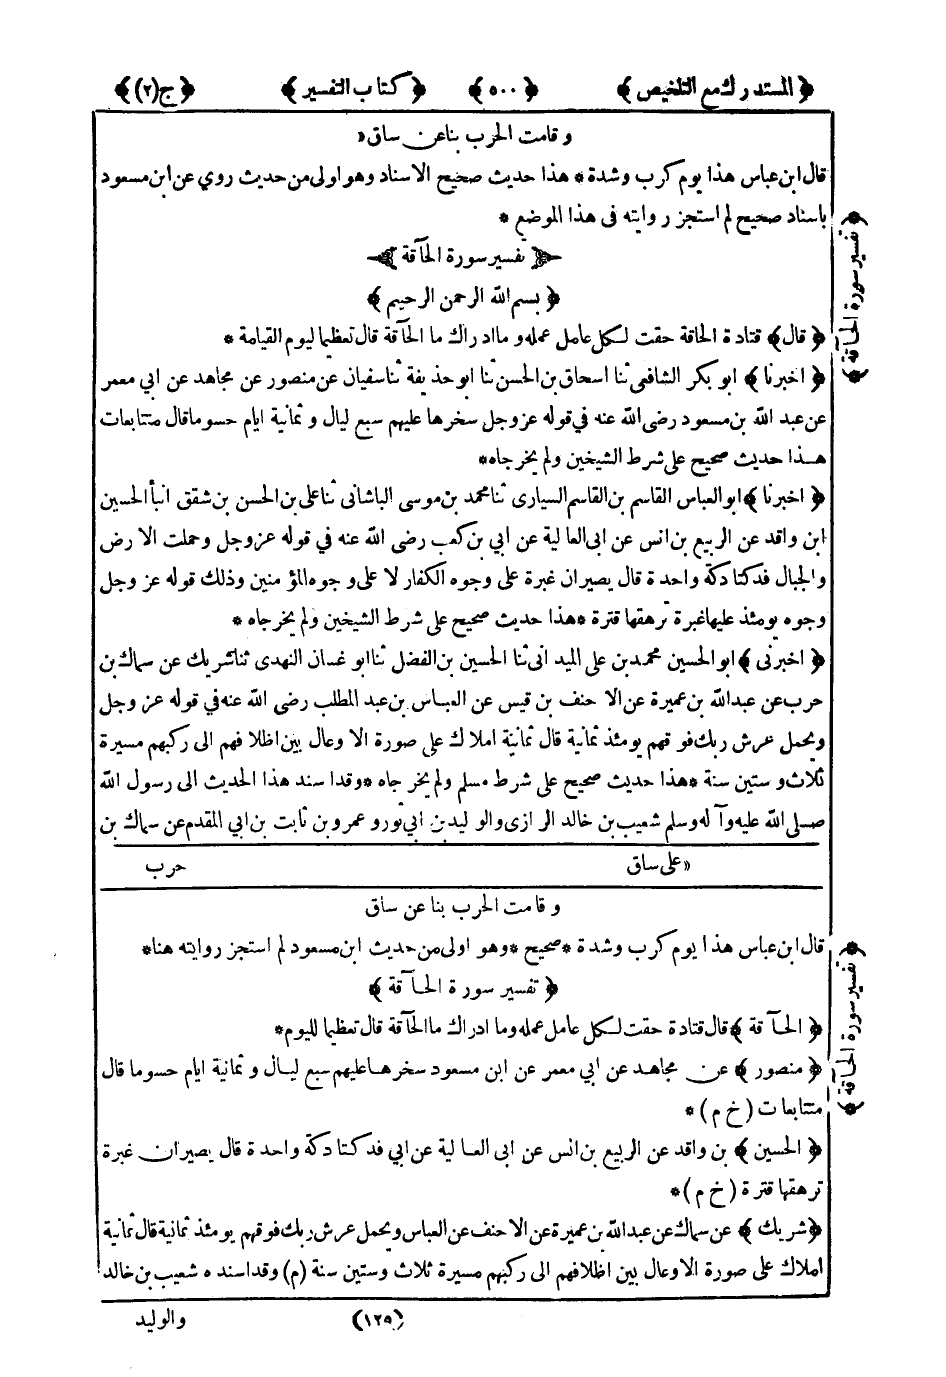 ﴿ المستدرك مع التلخيص ﴾ ﴿ ٥٠٠ ﴾ ﴿ كتاب التفسير ﴾ ﴿ ج(٢) ﴾
و قامت الحرب بنا عن ساق «
قال ابن عباس هذا يوم كرب وشدة * هذا حديث صحيح الاسناد وهو اولى من حديث روي عن ابن مسعود
باسناد صحيح لم استجز روايته فى هذا الموضع *
﴿ تفسير سورة الحآقة ﴾
﴿ بسم الله الرحمن الرحيم ﴾
﴿ قال ﴾ قتادة الحاقة حقت لكل عامل عمله وما ادراك ما الحآقة قال تعظيما ليوم القيامة *
﴿ اخبرنا ﴾ ابو بكر الشافعى ثنا اسحاق بن الحسن ثنا ابو حذيفة ثنا سفيان عن منصور عن مجاهد عن ابي معمر
عن عبد الله بن مسعود رضى الله عنه في قوله عز وجل سخرها عليهم سبع ليال و ثمانية ايام حسوما قال متتابعات
هذا حديث صحيح على شرط الشيخين ولم يخرجاه *
﴿ اخبرنا ﴾ ابو العباس القاسم بن القاسم السيارى ثنا محمد بن موسى الباشانى ثنا على بن الحسن بن شقق انبأ الحسين
ابن واقد عن الربيع بن انس عن ابى العالية عن ابي بن كعب رضى الله عنه في قوله عز وجل وحملت الارض
والجبال فدكتا دكة واحدة قال يصيران غبرة على وجوه الكفار لا على وجوه المؤمنين وذلك قوله عز وجل
وجوه يومئذ عليها غبرة ترهقها قترة * هذا حديث صحيح على شرط الشيخين ولم يخرجاه *
﴿ اخبرنى ﴾ ابو الحسين محمد بن على الميدانى ثنا الحسين بن الفضل ثنا ابو غسان النهدى ثنا شريك عن سماك بن
حرب عن عبد الله بن عميرة عن الاحنف بن قيس عن العباس بن عبد المطلب رضى الله عنه في قوله عز وجل
ويحمل عرش ربك فوقهم يومئذ ثمانية قال ثمانية املاك على صورة الاوعال بين اظلافهم الى ركبهم مسيرة
ثلاث و ستين سنة * هذا حديث صحيح على شرط مسلم ولم يخرجاه * وقد اسند هذا الحديث الى رسول الله
صلى الله عليه وآله وسلم شعيب بن خالد الرازى والوليد بن ابي ثور وعمرو بن ثابت بن ابي المقدم عن سماك بن
« على ساق حرب
و قامت الحرب بنا عن ساق
قال ابن عباس هذا يوم كرب وشدة * صحيح * وهو اولى من حديث ابن مسعود لم استجز روايته هنا *
﴿ تفسير سورة الحآقة ﴾
﴿ الحآقة ﴾ قال قتادة حقت لكل عامل عمله وما ادراك ما الحآقة قال تعظيما لليوم *
﴿ منصور ﴾ عن مجاهد عن ابي معمر عن ابن مسعود سخرها عليهم سبع ليال و ثمانية ايام حسوما قال
متتابعات (خ م) *
﴿ الحسين ﴾ بن واقد عن الربيع بن انس عن ابى العالية عن ابي فدكتا دكة واحدة قال يصيران غبرة
ترهقها قترة (خ م) *
﴿ شريك ﴾ عن سماك عن عبد الله بن عميرة عن الاحنف عن العباس ويحمل عرش ربك فوقهم يومئذ ثمانية قال ثمانية
املاك على صورة الاوعال بين اظلافهم الى ركبهم مسيرة ثلاث وستين سنة (م) وقد اسنده شعيب بن خالد
(١٢٥) والوليد
﴿ تفسير سورة الحآقة ﴾
﴿ تفسير سورة الحآقة ﴾